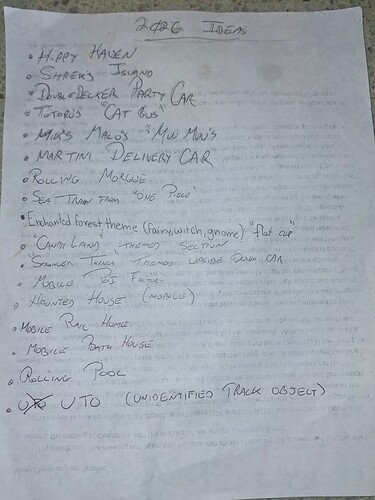 2026 IDEAS
• HIPPY HAVEN
• SHREK'S ISLAND
• DOUBLE DECKER PARTY CAR
• TOTORO'S "CAT BUS"
• MALO'S "MUN MUN'S"
• MARTINI DELIVERY CAR
• ROLLING MORGUE
• SEA TRAIN FROM "ONE PIECE"
• Enchanted forest theme (fairy, witch, gnome) "flat car"
• "CANDY LAND" THEMED SECTION
• "STRANGER THINGS" THEMED UPSIDE DOWN CAR
• MOBILE FACTORY
• HAUNTED HOUSE (MOBILE)
• MOBILE RAIL HOME
• MOBILE BATH HOUSE
• ROLLING POOL
• UTO (UNIDENTIFIED TRACK OBJECT)